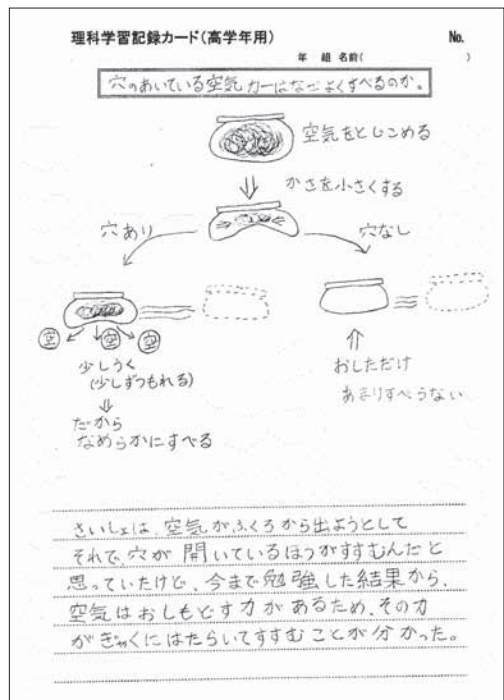 理科学習記録カード(高学年用) No.
年 組 名前( )
穴のあいている空気カーはなぜよくすべるのか。
空気をとじこめる
かさを小さくする
穴あり
穴なし
空 空 空
少しうく
(少しずつもれる)
だから
なめらかにすべる
おしただけ
あまりすべらない
さいしょは、空気がふくろから出ようとして
それで、穴が開いているほうがすすむんだと
思っていたけど、今まで勉強した結果から、
空気はおしもどす力があるため、その力
がぎゃくにはたらいてすすむことが分かった。